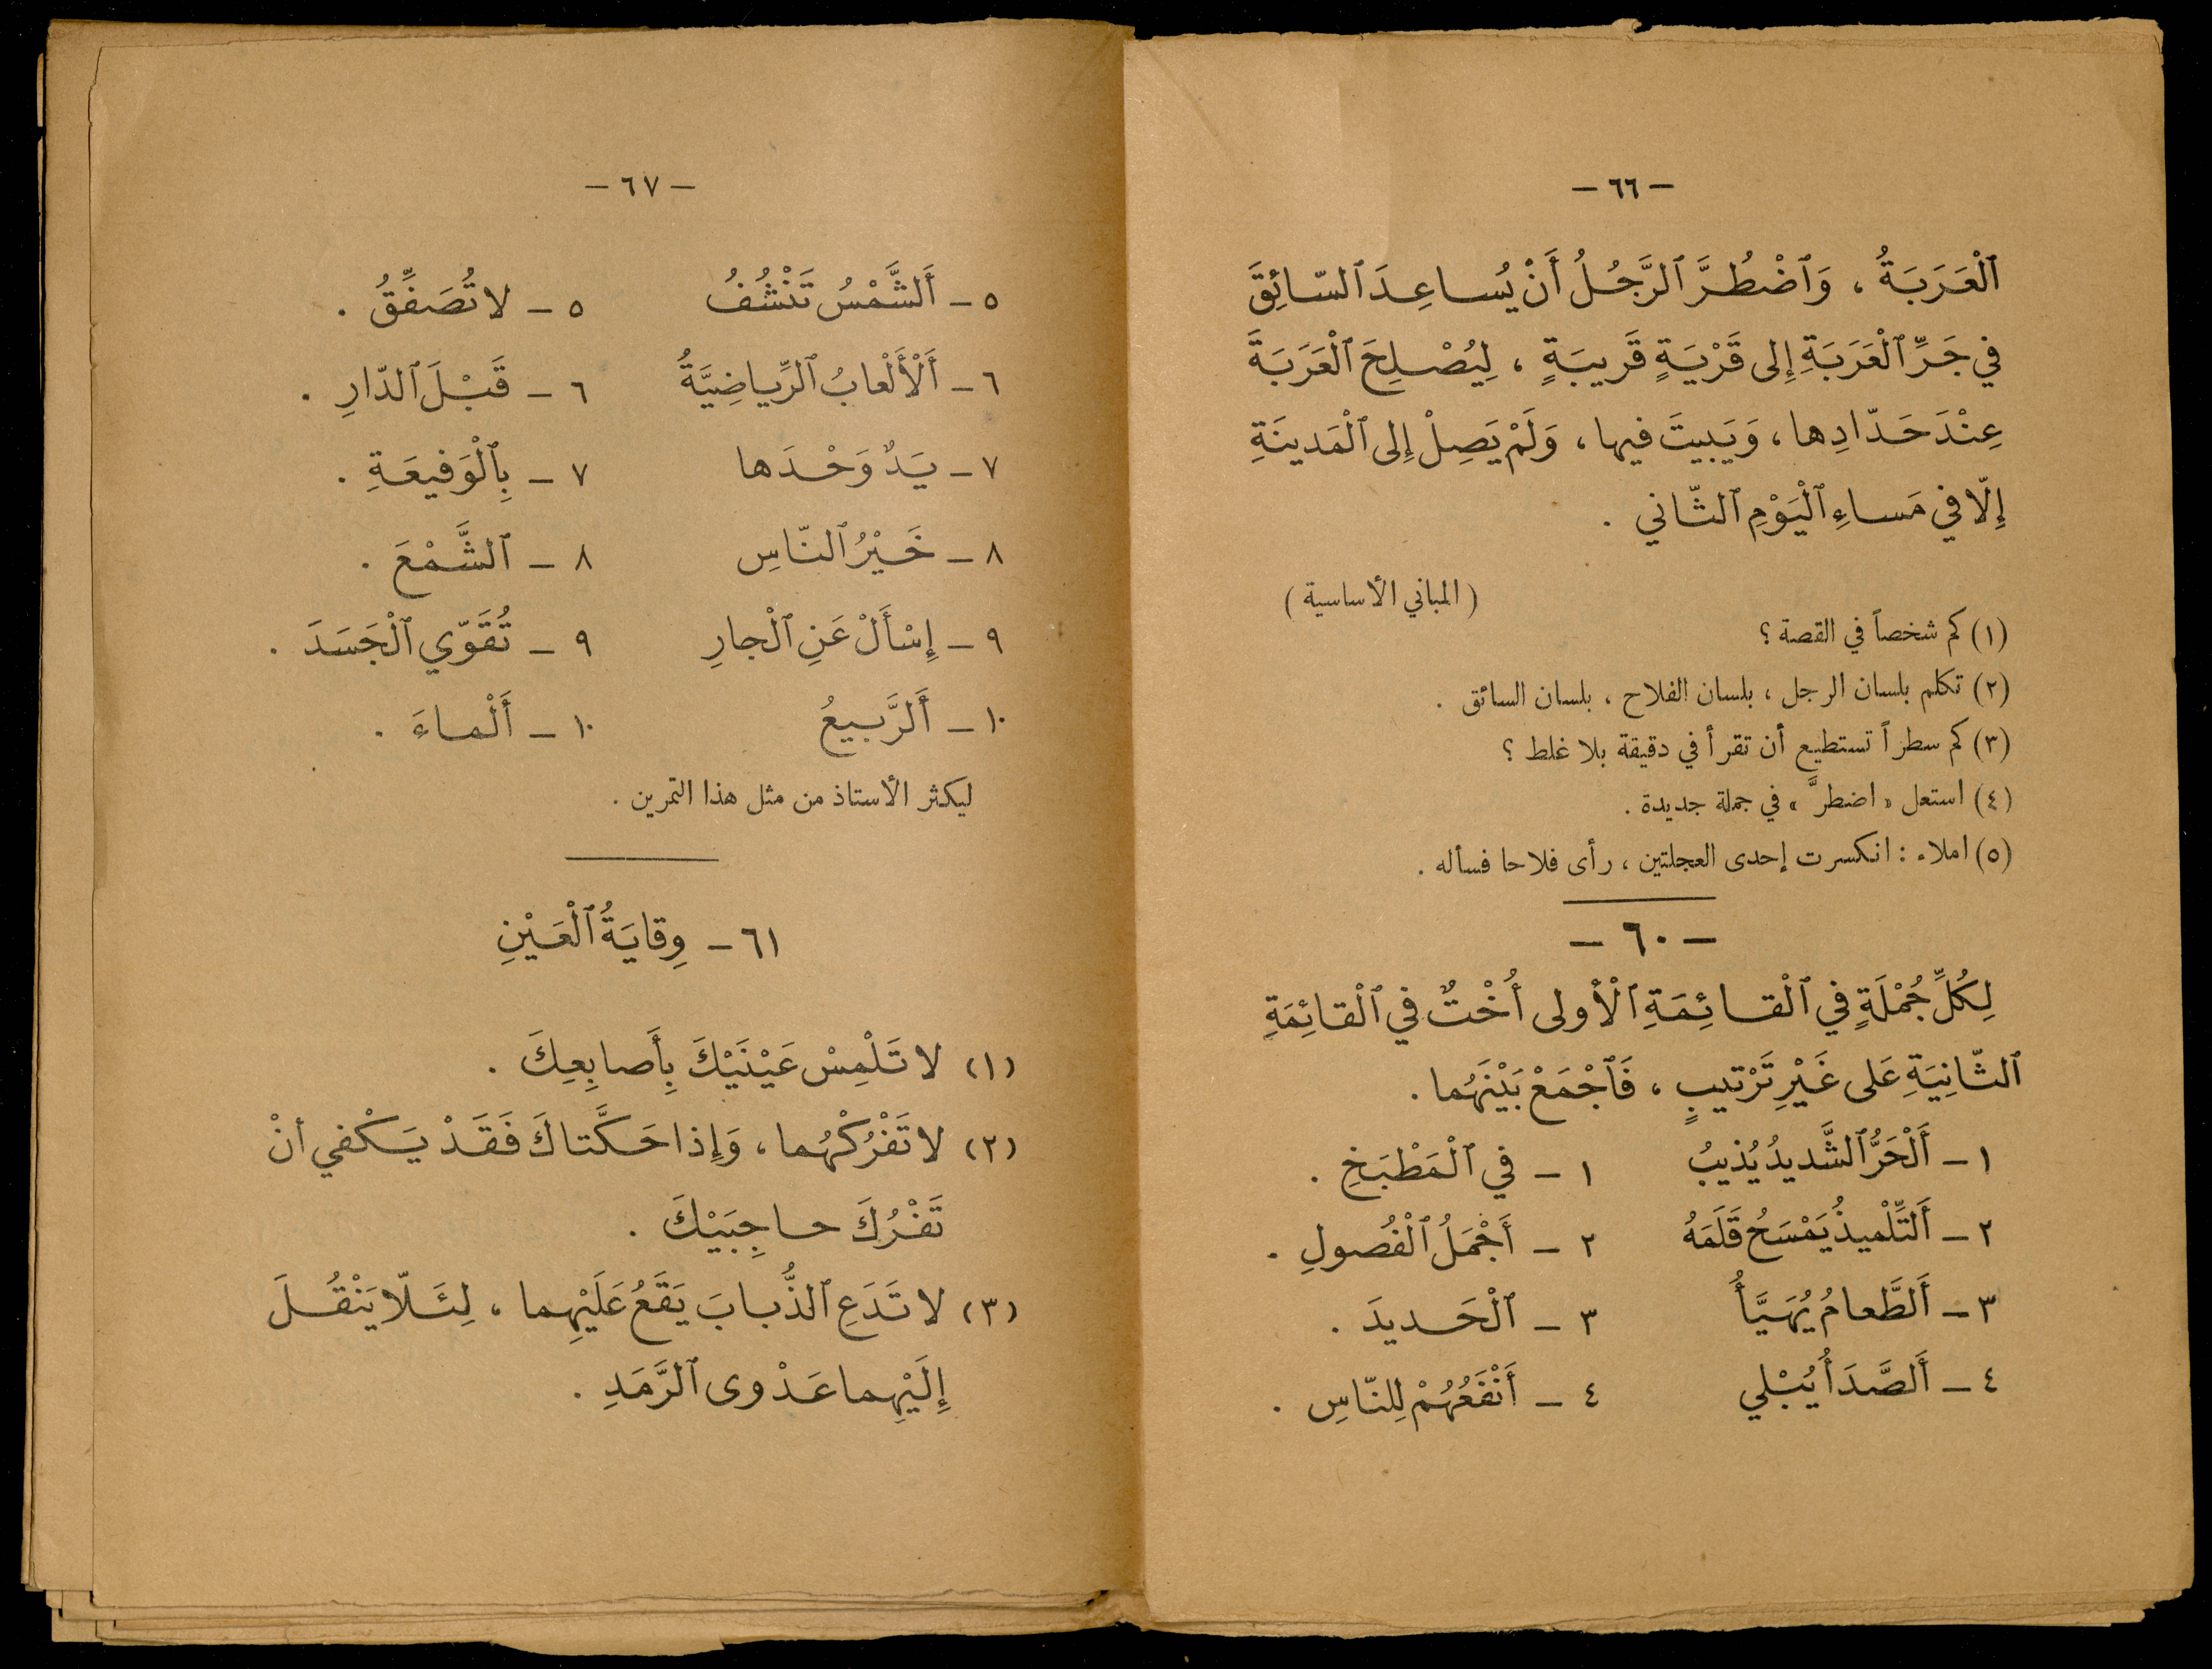 — ٦٦ —
ٱلْعَرَبَةُ ، وَٱضْطُرَّ ٱلرَّجُلُ أَنْ يُساعِدَ ٱلسّائِقَ
في جَرِّ ٱلْعَرَبَةِ إِلى قَرْيَةٍ قَريبَةٍ ، لِيُصْلِحَ ٱلْعَرَبَةَ
عِنْدَ حَدّادِها ، وَيَبيتَ فيها ، وَلَمْ يَصِلْ إِلى ٱلْمَدينَةِ
إِلّا في مَساءِ ٱلْيَوْمِ ٱلثّاني .
( المباني الأساسية )
(١) كم شخصاً في القصة ؟
(٢) تكلم بلسان الرجل ، بلسان الفلاح ، بلسان السائق .
(٣) كم سطراً تستطيع أن تقرأ في دقيقة بلا غلط ؟
(٤) استعمل « اضطرَّ » في جملة جديدة .
(٥) املاء : انكسرت إحدى العجلتين ، رأى فلاحا فسأله .
— ٦٠ —
لِكُلِّ جُمْلَةٍ في ٱلْقائِمَةِ ٱلْأولى أُخْتٌ في ٱلْقائِمَةِ
ٱلثّانِيَةِ عَلى غَيْرِ تَرْتيبٍ ، فَٱجْمَعْ بَيْنَهُما .
١ – أَلْحَرُّ ٱلشَّديدُ يُذيبُ ١ – في ٱلْمَطْبَخِ .
٢ – أَلتِّلْميذُ يَمْسَحُ قَلَمَهُ ٢ – أَجْمَلُ ٱلْفُصولِ .
٣ – أَلطَّعامُ يُهَيَّأُ ٣ – ٱلْحَديدَ .
٤ – أَلصَّدَأُ يُبْلي ٤ – أَنْفَعُهُمْ لِلنّاسِ .
— ٦٧ —
٥ – أَلشَّمْسُ تَنْشُفُ ٥ – لا تُصَفِّقُ .
٦ – أَلْأَلْعابُ ٱلرِّياضِيَّةُ ٦ – قَبْلَ ٱلدّارِ .
٧ – يَدٌ وَحْدَها ٧ – بِٱلْوَفيعَةِ .
٨ – خَيْرُ ٱلنّاسِ ٨ – ٱلشَّمْعَ .
٩ – إِسْأَلْ عَنِ ٱلْجارِ ٩ – تُقَوّي ٱلْجَسَدَ .
١٠ – أَلرَّبيعُ ١٠ – أَلْماءَ .
ليكثر الأستاذ من مثل هذا التمرين .
٦١ – وِقايَةُ ٱلْعَيْنِ
(١) لا تَلْمِسْ عَيْنَيْكَ بِأَصابِعِكَ .
(٢) لا تَفْرُكْهُما ، وَإِذا حَكَّتاكَ فَقَدْ يَكْفي أنْ
تَفْرُكَ حاجِبَيْكَ .
(٣) لا تَدَعِ ٱلذُّبابَ يَقَعُ عَلَيْهِما ، لِئَلّا يَنْقُلَ
إِلَيْهِما عَدْوى ٱلرَّمَدِ .